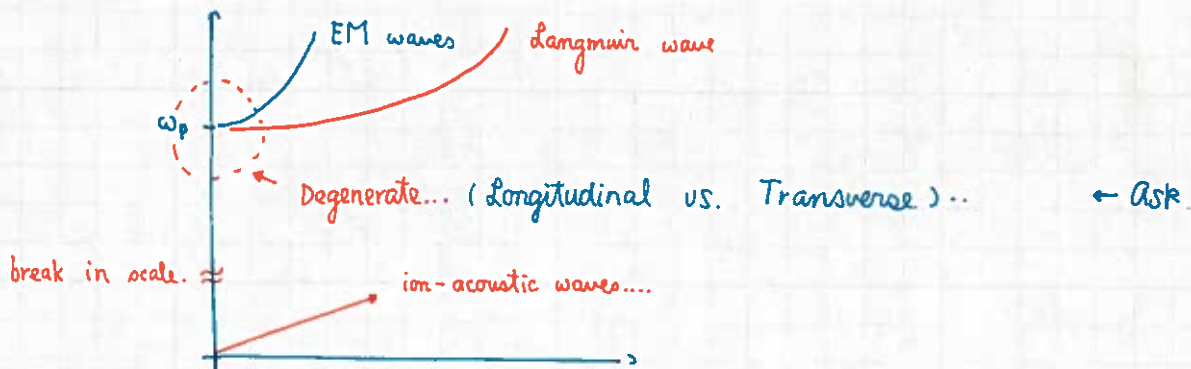 EM waves
Langmuir wave
ωp
Degenerate... (Longitudinal vs. Transverse)..
← Ask.
break in scale.
ion-acoustic waves....